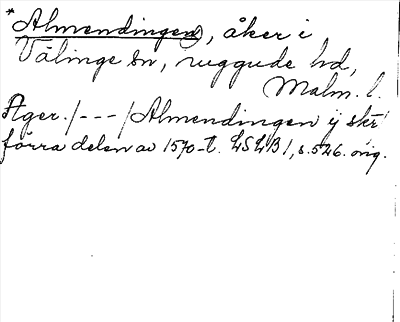 *Almendingen, åker i
Välinge sn, Luggude hd,
Malm. l.
Ager. /---/ Almendingen ij skr
förra delen av 1570-t. LSLB 1, s. 526. orig.